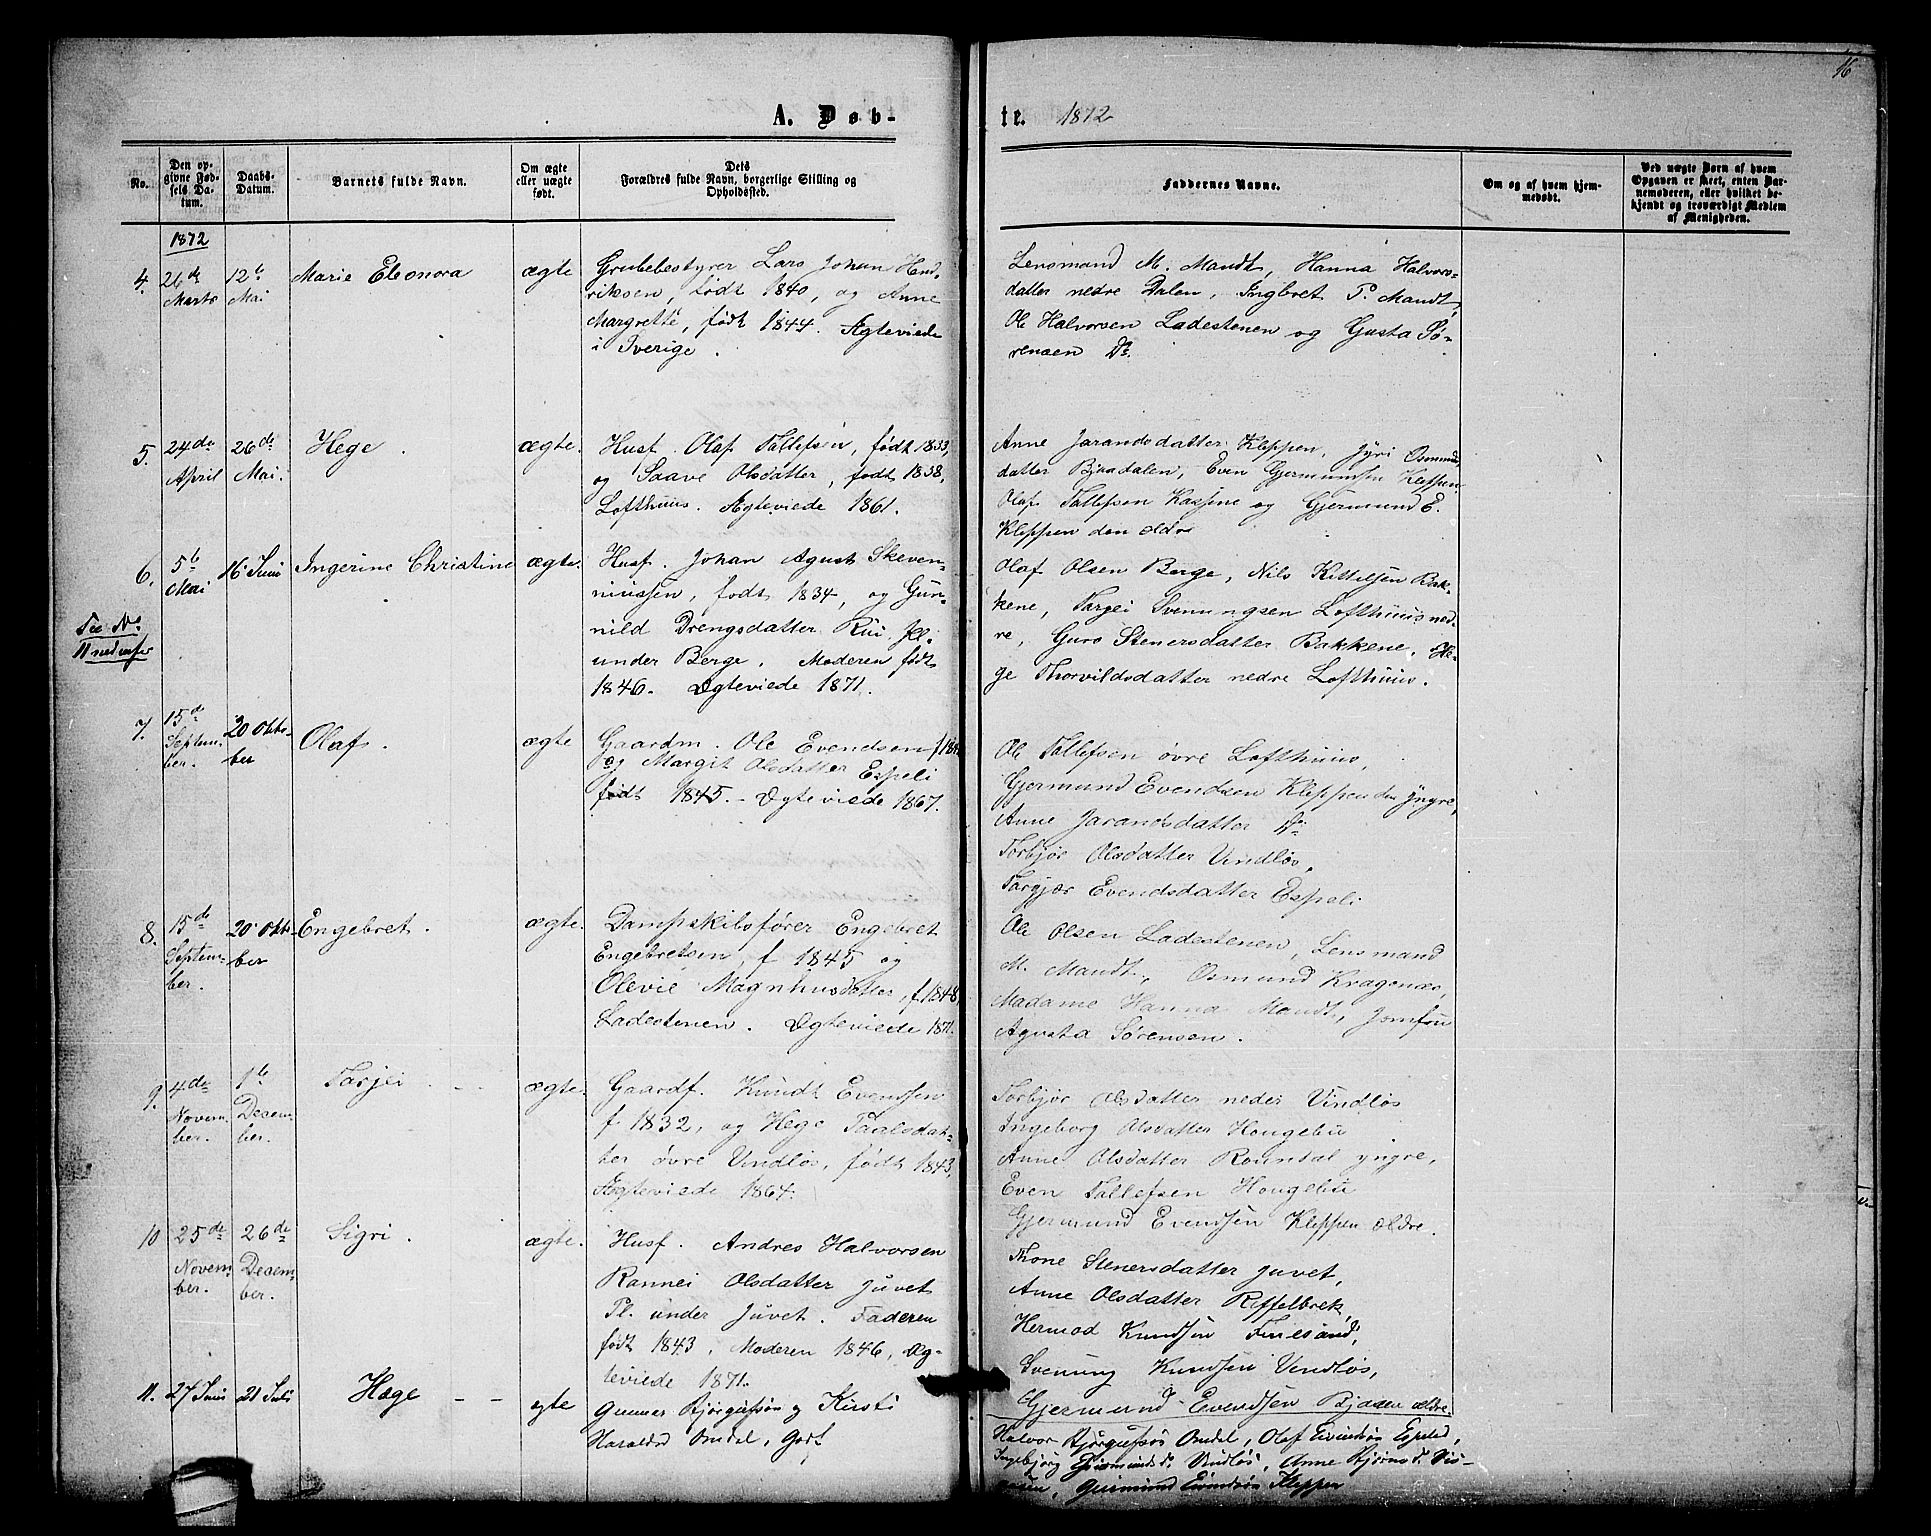 16
A. Døb-
te. 1872
No.
Den op-
givne Fød-
sels Da-
tum.
Daabs-
Datum.
Barnets fulde Navn.
Om ægte
eller uægte
født.
Dets
Forældres fulde Navn, borgerlige Stilling og
Opholdssted.
Faddernes Navne.
Om og af hvem hjem-
medøbt.
Ved uægte Børn af hvem
Opgaven er skeet, enten Bar-
nemoderen, eller hvilket be-
kjendt og troværdigt Medlem
af Menigheden.
1872
4.
26de
Marts
12te
Mai
Marie Eleonora
ægte
Grubebestyrer Lars Johan Hend-
riksen, født 1840, og Anne
Margrette, født 1844. Ægteviede
i Sverige.
Lensmand M. Mandt, Hanna Halvors-
datter nedre Dalen, Ingbret P. Mandt,
Ole Halvorsen Ladestenen og Gusta Sø-
rensen Do.
5.
24de
April
26de
Mai.
Hege.
ægte.
Husf. Olaf Tallefsen, født 1833,
og Saave Olsdatter, født 1838,
Lofthuus. Ægteviede 1861.
Anne Jarandsdatter Kleppen, Jyri Osmunds
datter Bjaadalen, Even Gjermundsen Kleppen
Olaf Tallefsen Kassine og Gjermund E.
Kleppen den eldre
6.
5te
Mai
16 Juni
Ingerine Christine
ægte.
Husf. Johan Agust Skeven-
niussen, født 1834, og Gun-
nild Drengsdatter Rui. Pl.
under Berge. Moderen født
1846. Ægteviede 1871.
Olaf Olsen Berge, Nils Kittilsen Bak-
kene, Tarjei Svenungsen Lofthuus ned-
re, Guro Stenersdatter Bakkene, He-
ge Thorvildsdatter nedre Lofthuus.
See No.
11 nedenfor
7.
15de
Septem-
ber.
20 Okto-
ber
Olaf.
ægte
Gaardm. Ole Evendsen f
og Margit Olsdatter Espeli
født 1845. - Ægteviede 1867.
Ole Tallefsen övre Lofthuus,
Gjermund Evendsen Kleppen den Yngre,
Anne Jarandsdatter Do.
Torbjør Olsdatter Vindløs,
Targjør Evendsdatter Espeli
8.
15de
Septem-
ber.
20 Okto-
ber
Engebret.
ægte.
Dampskibsfører Engebret
Engebretsen, f 1845 og
Olevie Magnhusdatter, f. 1848,
Ladestenen. Ægteviede 1871.
Ole Olsen Ladestenen, Lensmand
M. Mandt, Osmund Kragenæs,
Madame Hanna Mandt, Jomfru
Agusta Sørensen.
9.
4de
Novem-
ber.
1te
Decem-
ber.
Tarjei. - -
ægte.
Gaardf. Knudt Evendsen
f 1832, og Hege Paalsdat-
ter øvre Vindløs, født 1843,
Ægteviede 1864.
Torbjør Olsdatter neder Vindløs
Ingeborg Olsdatter Hougebu
Anne Olsdatter Rountal yngre,
Even Tallefsen Hougebu
Gjermund Evendsen Kleppen ældre.
10
25de
Novem-
ber.
26de
Decem-
ber.
Sigri.
ægte.
Husf. Andres Halvorsen
Rannei Olsdatter Juvet
Pl. under Juvet. Faderen
født 1843, Moderen 1846, Æg-
teviede 1871.
Thone Stenersdatter Juvet,
Anne Olsdatter Riffelbrek,
Hermod Knudsen Finesand,
Svenung Knudsen Vindløs,
Gjermund Evendsen Bjaaen ældre
11.
27 Juni
21 Juli
Hæge - -
egte
Gunnar Bjørgufsøn og Kirsti
Haraldsd Omdal, Gdf
Halvor Bjørgufsøn Omdal, Olaf Eivindsøn Espelid,
Ingebjørg Germundsd. Vindløs, Anne Bjørnsd.
Germund Eivindsøn Kleppen